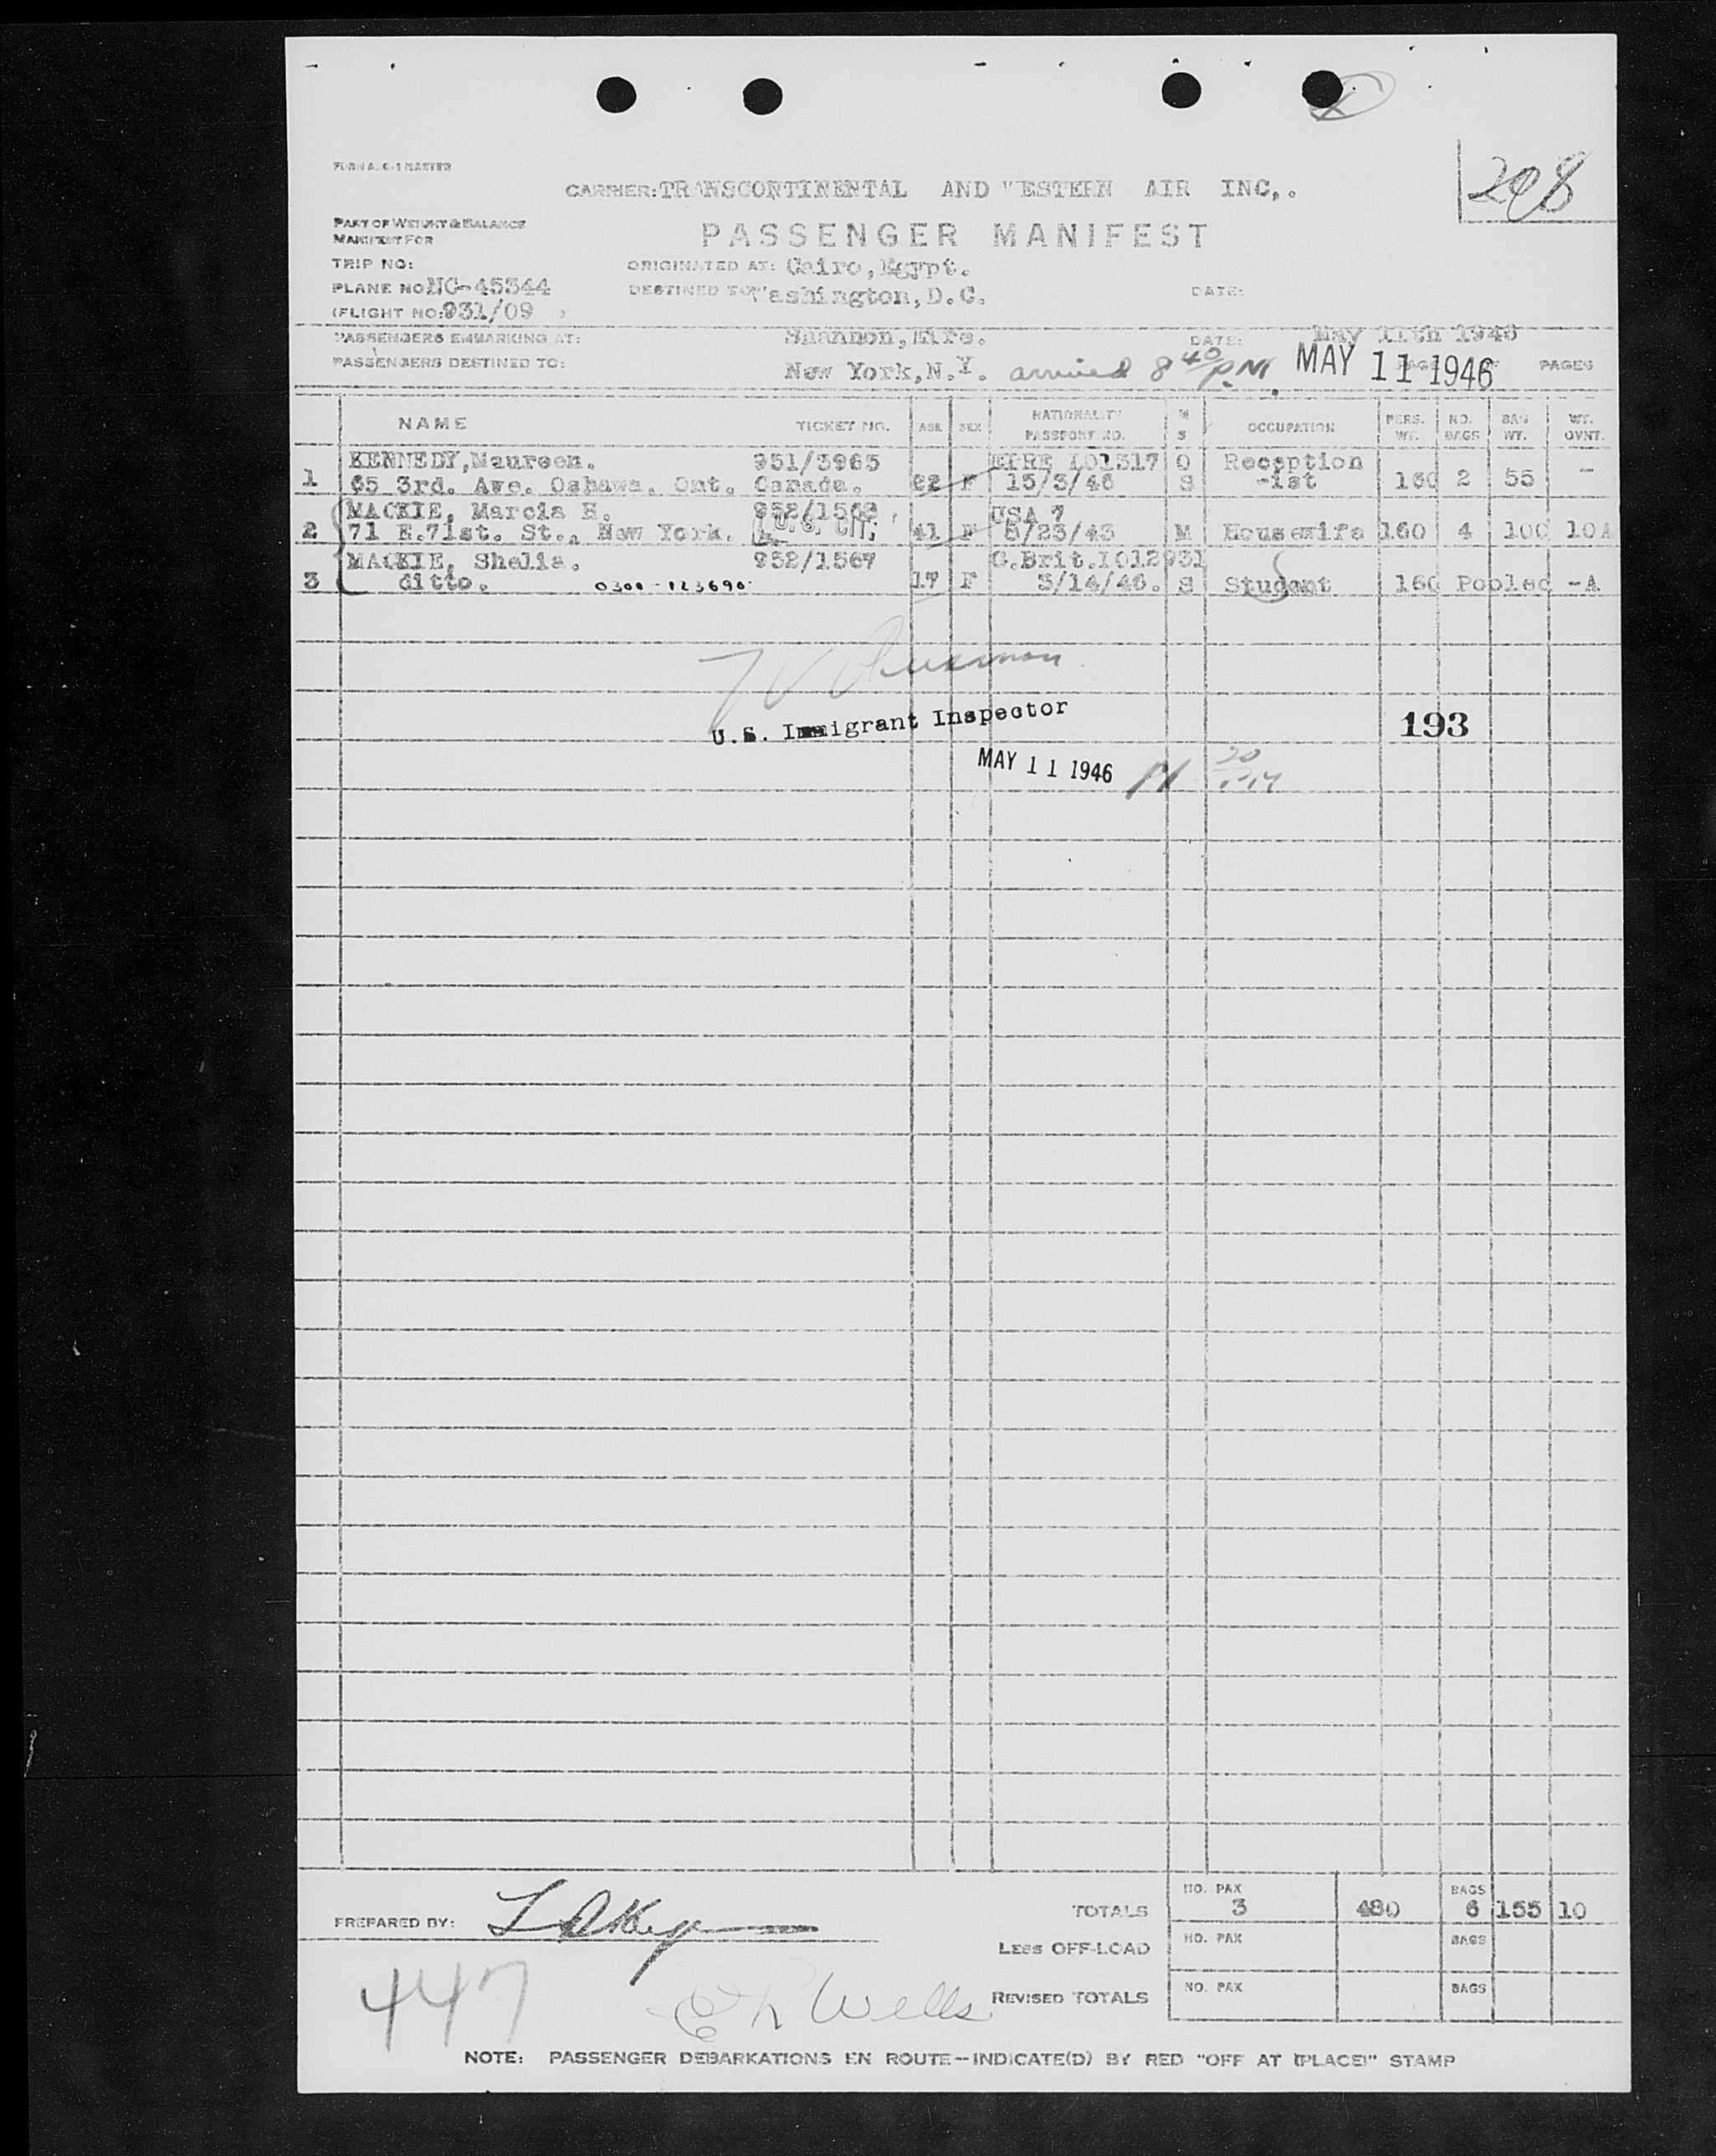 FORM A.C-1 MASTER
208
CARRIER: TRANSCONTINENTAL AND "ESTERN AIR INC,.
PART OF WEIGHT & BALANCE
MANIFEST FOR
PASSENGER MANIFEST
TRIP NO:
ORIGINATED AT: Cairo, Egypt.
PLANE NO: NC-45344
DESTINED TO: "ashington, D.C.
DATE:
(FLIGHT NO: 931/09 )
PASSENGERS EMBARKING AT: Shannon, Eire. DATE: May 11th 1946
PASSENGERS DESTINED TO: New York, N.Y. arrived 8 40 P.M. MAY 11 1946 PAGE OF PAGES
NAME TICKET NO. AGE SEX NATIONALITY PASSPORT NO. M S OCCUPATION PERS. WT. NO. BAGS BAG WT. WT. OVNT.
KENNEDY, Maureen. 951/3965 EIRE 101317 O Reception
1 65 3rd. Ave. Oshawa. Ont. Canada. F 15/3/46 S -ist 160 2 55 -
MACKIE, Marcia H. U.S. CIT. USA 7
2 71 E.71st. St., New York. 41 F 5/23/43 M Housewife 160 4 100 10A
MACKIE, Shelia. 952/1567 G.Brit.1012931
3 ditto. 0300-123690 17 F 3/14/46. S Student 160 Pooled -A
U.S. Immigrant Inspector
193
MAY 11 1946
TOTALS NO. PAX 3 480 BAGS 6 155 10
PREPARED BY:
LESS OFF-LOAD NO. PAX BAGS
447
Wells
REVISED TOTALS NO. PAX BAGS
NOTE: PASSENGER DEBARKATIONS EN ROUTE-INDICATE(D) BY RED "OFF AT (PLACE)" STAMP